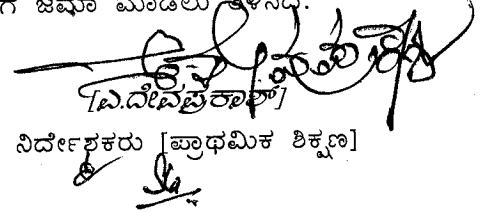 ಗೆ ಜಮಾ ಮಾಡಲು ತಿಳಿಸಿದೆ.
[ಎ.ದೇವಪ್ರಕಾಶ್]
ನಿರ್ದೇಶಕರು [ಪ್ರಾಥಮಿಕ ಶಿಕ್ಷಣ]